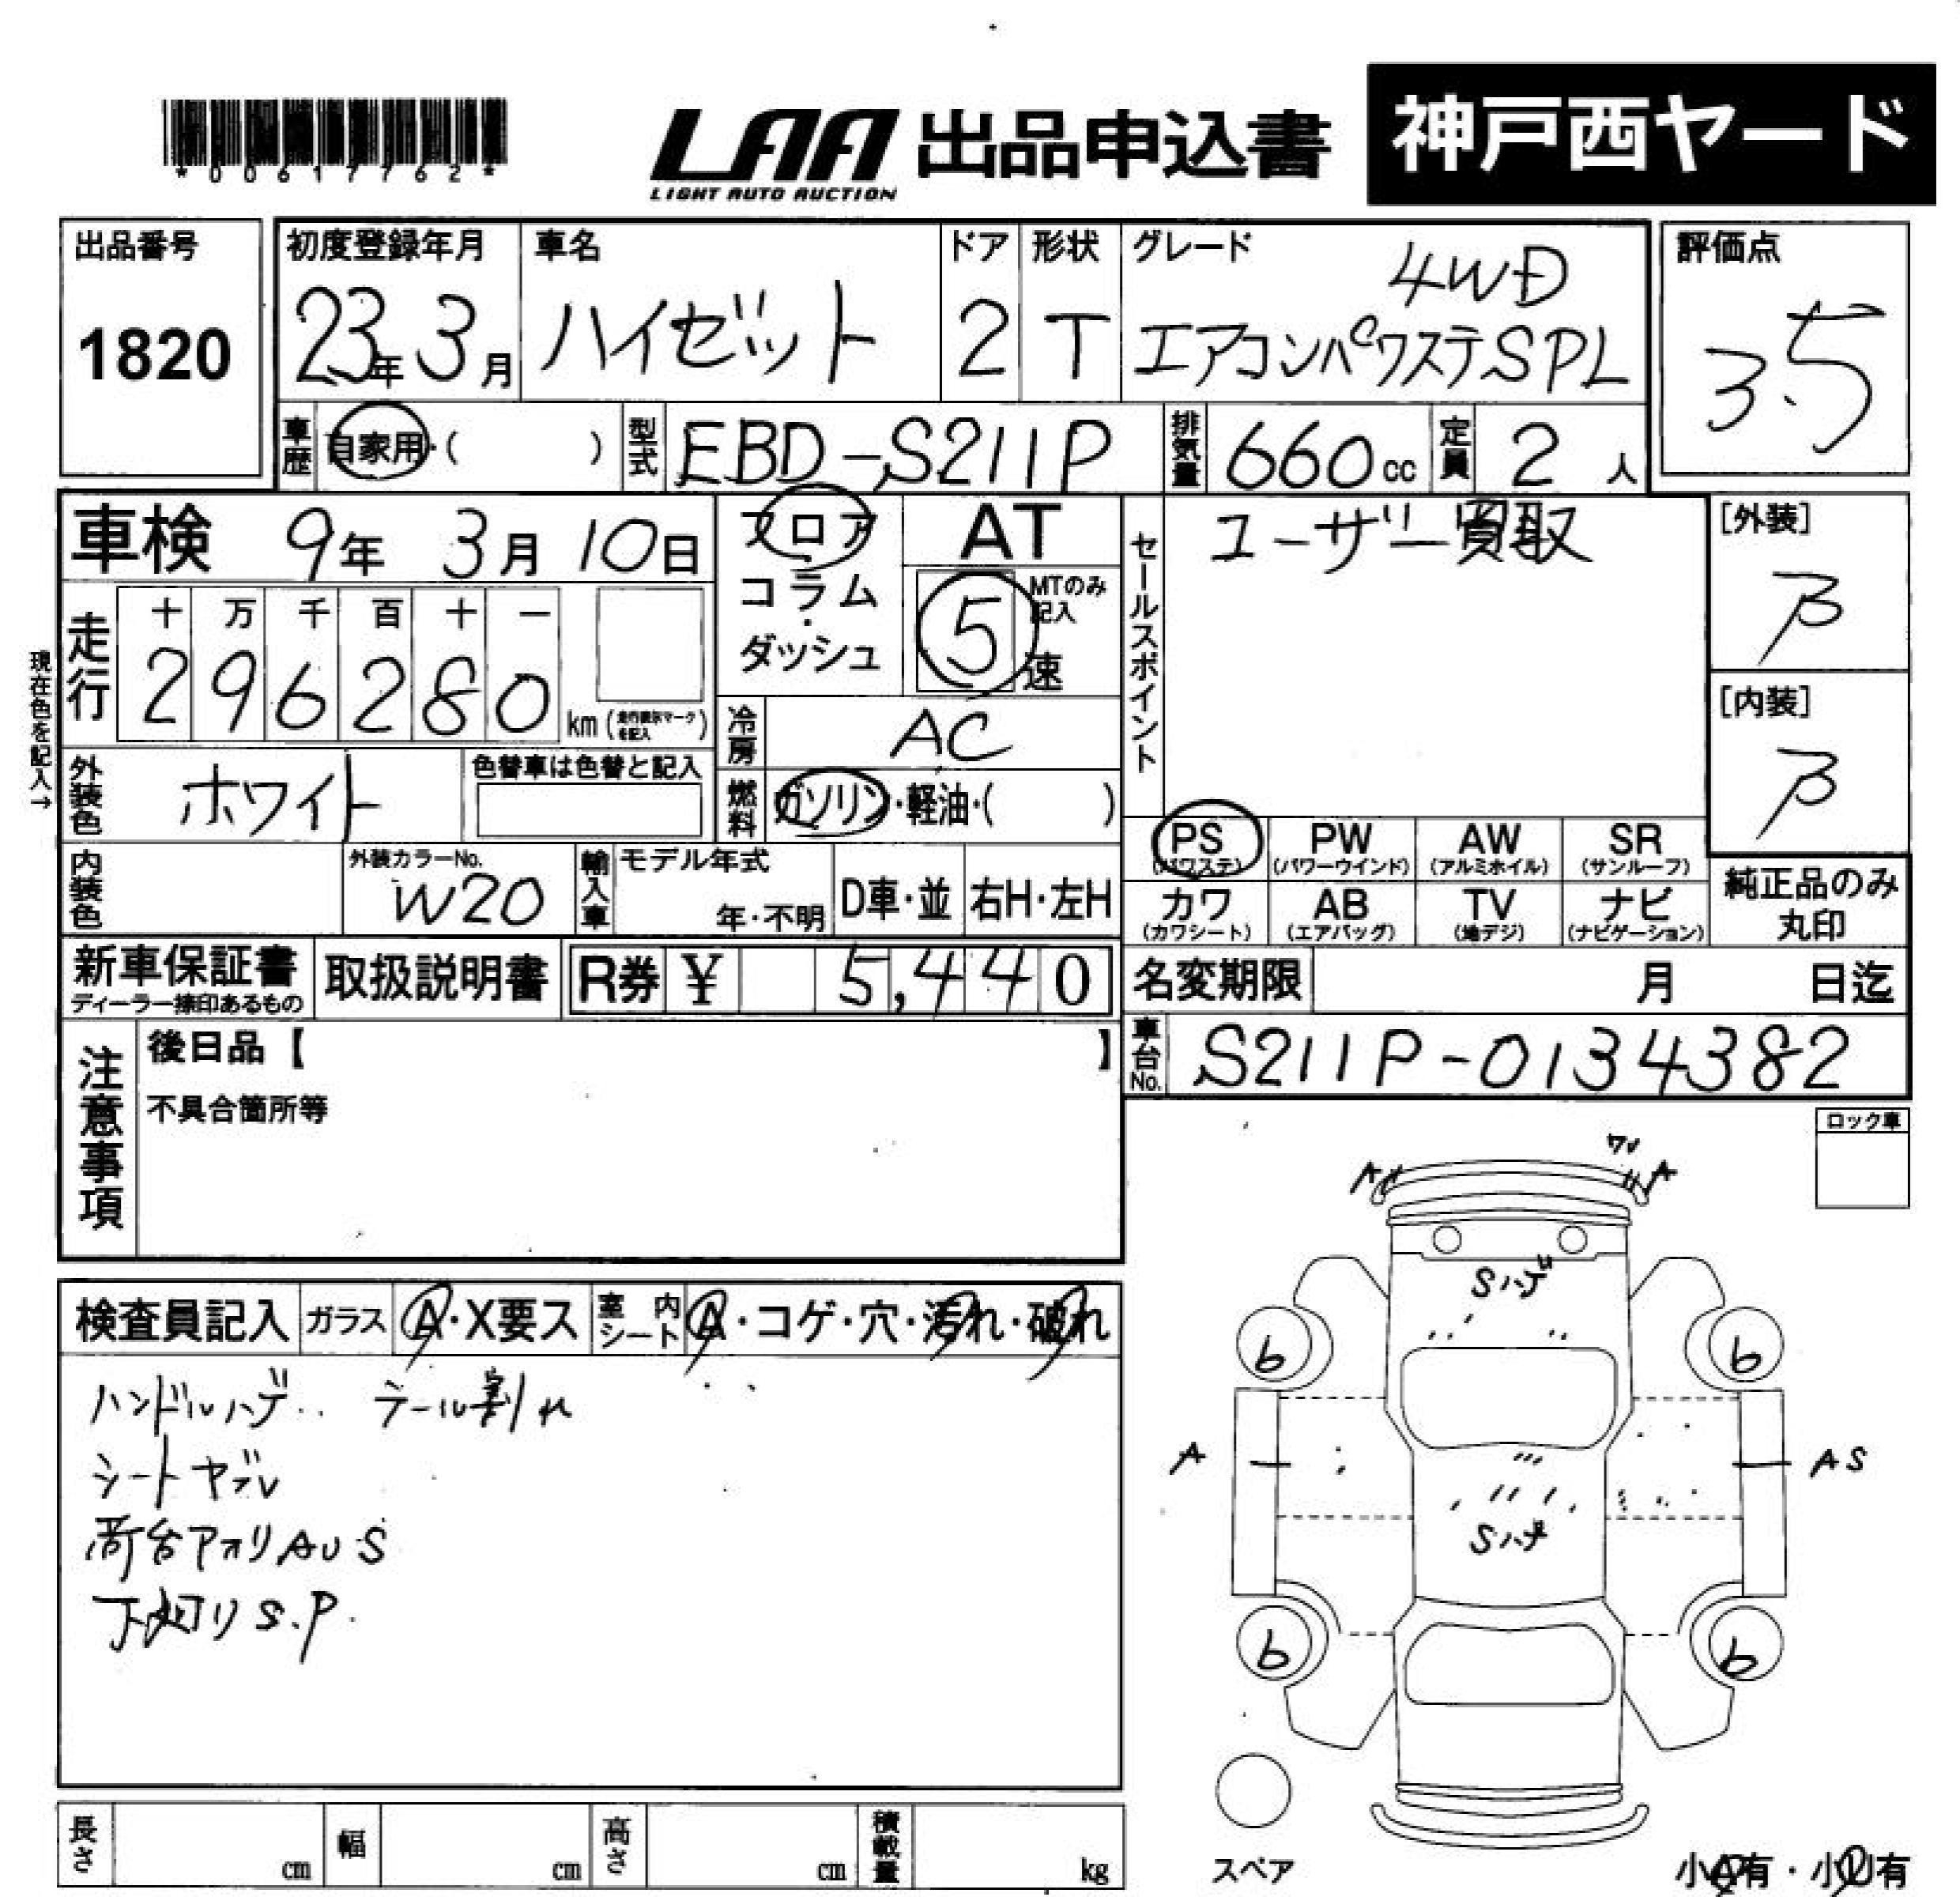 *00617762*
LAA 出品申込書 神戸西ヤード
LIGHT AUTO AUCTION
出品番号 1820
初度登録年月 23年3月
車名 ハイゼット
ドア 2
形状 T
グレード 4WD
エアコンパワステSPL
評価点 3.5
車歴 自家用・( )
型式 EBD-S211P
排気量 660cc
定員 2人
車検 9年 3月 10日
フロア
コラム・
ダッシュ
AT
5速 MTのみ記入
セールスポイント ユーザー買取
[外装] β
[内装] β
現在色を記入→
走行 十 万 千 百 十 一
296280 km (走行表示マークを記入)
冷房 AC
燃料 ガソリン・軽油・( )
外装色 ホワイト
色替車は色替と記入
内装色
外装カラーNo. W20
輸入車 モデル年式 年・不明 D車・並 右H・左H
PS (パワステ) PW (パワーウインド) AW (アルミホイル) SR (サンルーフ)
カワ (カワシート) AB (エアバッグ) TV (地デジ) ナビ (ナビゲーション)
純正品のみ
丸印
新車保証書
ディーラー捺印あるもの
取扱説明書
R券 ¥ 5,440
名変期限 月 日迄
車台No. S211P-0134382
注意事項
後日品【 】
不具合箇所等
ロック車
検査員記入 ガラス A・X要ス 室内シート A・コゲ・穴・汚れ・破れ
ハンドルハゲ テール割れ
シートヤブレ
荷台アオリAUS
下廻りS.P.
A ワレ A
Sハゲ
b b
A AS
Sハゲ
b b
スペア
小A有・小U有
長さ cm 幅 cm 高さ cm 積載量 kg